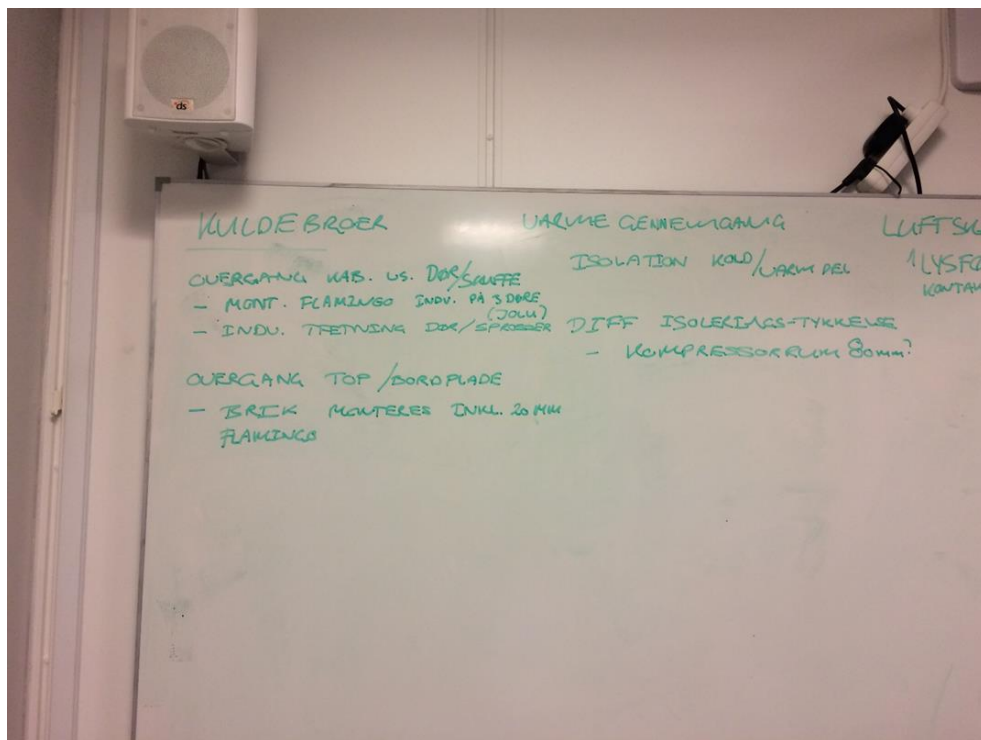 KULDEBROER
OVERGANG KAB. VS. DØR/SKUFFE
- MONT. FLAMINGO INDV. PÅ 3 DØRE
- INDV. TÆTNING DØR/SPROSSER
OVERGANG TOP/BORDPLADE
- BRIK MONTERES INKL. 20 MM
FLAMINGO
VARME GENNEMGANG
ISOLATION KOLD/VARM DEL
DIFF ISOLERINGS-TYKKELSE
- KOMPRESSORRUM 80mm?
LUFTSK
LYSFO
KONTAK
ds